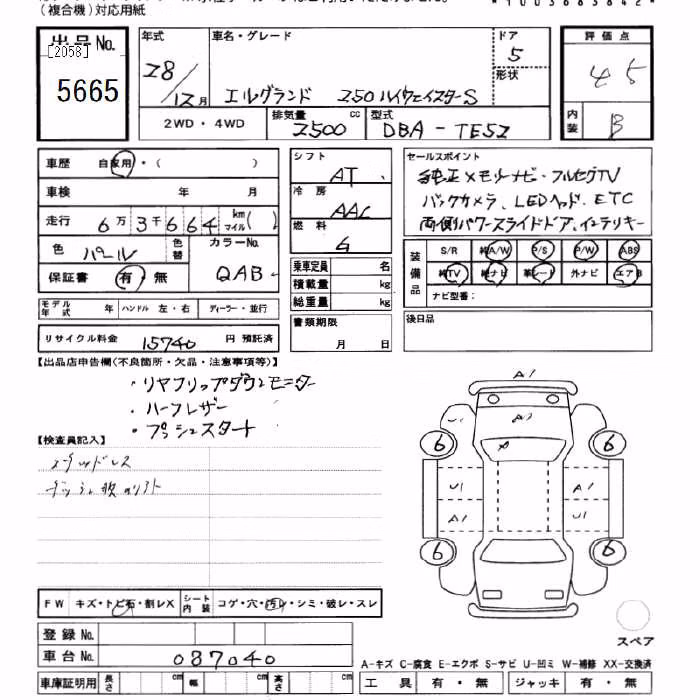 (複合機)対応用紙
*1003683842*
出品No.
[2058]
5665
年式
28/12月
車名・グレード
エルグランド 250ハイウェイスターS
ドア
5
形状
評価点
4.5
内装
B
2WD・4WD
排気量
2500
cc
型式
DBA-TE52
車歴
自家用・( )
車検
年 月
走行
6万3千664
km
マイル( )
色
パール
色替
カラーNo.
QAB
保証書
有・無
モデル年式
年
ハンドル 左・右
ディーラー・並行
リサイクル料金
15740
円 預託済
シフト
AT
冷房
AAC
燃料
G
乗車定員
名
積載量
kg
総重量
kg
書類期限
月 日
セールスポイント
純正メモリーナビ・フルセグTV
バックカメラ、LEDヘッド、ETC
両側パワースライドドア、インテリキー
装備品
S/R
純A/W
P/S
P/W
ABS
純TV
純ナビ
革シート
外ナビ
エアB
ナビ型番:
後日品
【出品店申告欄(不良箇所・欠品・注意事項等)】
・リヤフリップダウンモニター
・ハーフレザー
・プッシュスタート
【検査員記入】
A1
U1
A2
A1
6
6
U1
A1
A1
U1
6
6
FW
キズ・トビ石・割レX
シート内装
コゲ・穴・汚レ・シミ・破レ・スレ
登録No.
車台No.
087040
車庫証明用
長さ
cm
幅
cm
高さ
cm
スペア
A-キズ C-腐食 E-エクボ S-サビ U-凹ミ W-補修 XX-交換済
工具
有・無
ジャッキ
有・無